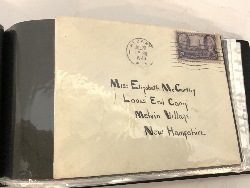 Miss Elizabeth McCarthy
Loose End Camp
Melvin Village
New Hampshire